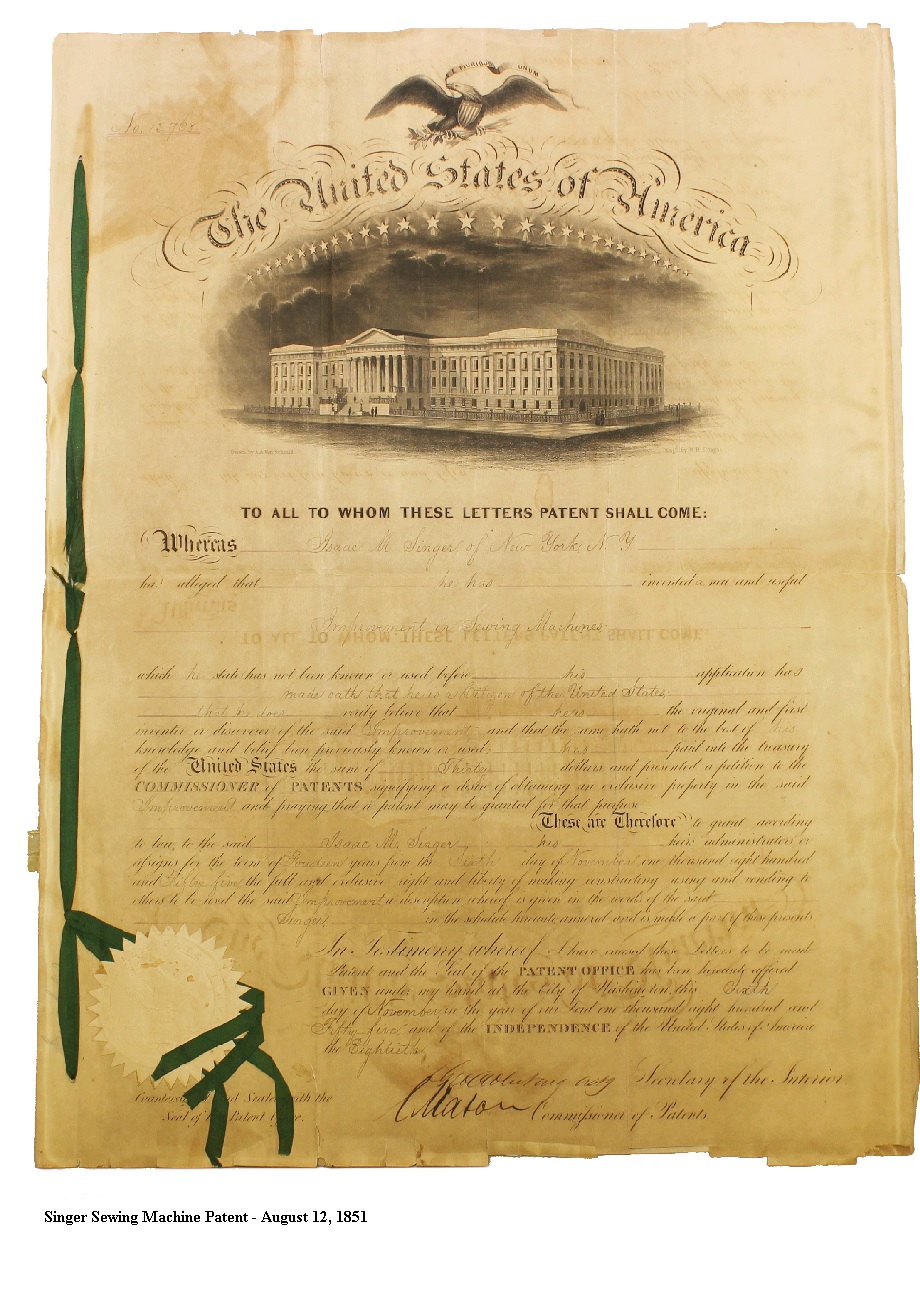 E PLURIBUS UNUM
No. 13,768.
The United States of America
TO ALL TO WHOM THESE LETTERS PATENT SHALL COME:
Whereas Isaac M. Singer of New York, N.Y
has alleged that he has invented a new and useful
Improvement in Sewing Machines
which he states has not been known or used before his application has
made oath that he is a citizen of the United States
that he does verily believe that he is the original and first
inventor or discoverer of the said Improvement and that the same hath not to the best of his
knowledge and belief been previously known or used; has paid into the treasury
of the United States the sum of Thirty dollars and presented a petition to the
COMMISSIONER of PATENTS signifying a desire of obtaining an exclusive property in the said
Improvement and praying that a patent may be granted for that purpose
These are Therefore to grant according
to law, to the said Isaac M. Singer his heirs administrators or
assigns for the term of fourteen years from the Sixth day of November one thousand eight hundred
and fifty five the full and exclusive right and liberty of making constructing using and vending to
others to be used the said Improvement a description whereof is given in the words of the said
Singer in the schedule hereunto annexed and is made a part of these presents
In Testimony whereof I have caused these Letters to be made
Patent and the Seal of the PATENT OFFICE has been hereunto affixed
GIVEN under my hand at the City of Washington this Sixth
day of November in the year of our Lord one thousand eight hundred and
Fifty five and of the INDEPENDENCE of the United States of America
the Eightieth
Secretary of the Interior
C Mason Commissioner of Patents
Countersigned and Sealed with the
Seal of the Patent Office.
Singer Sewing Machine Patent - August 12, 1851